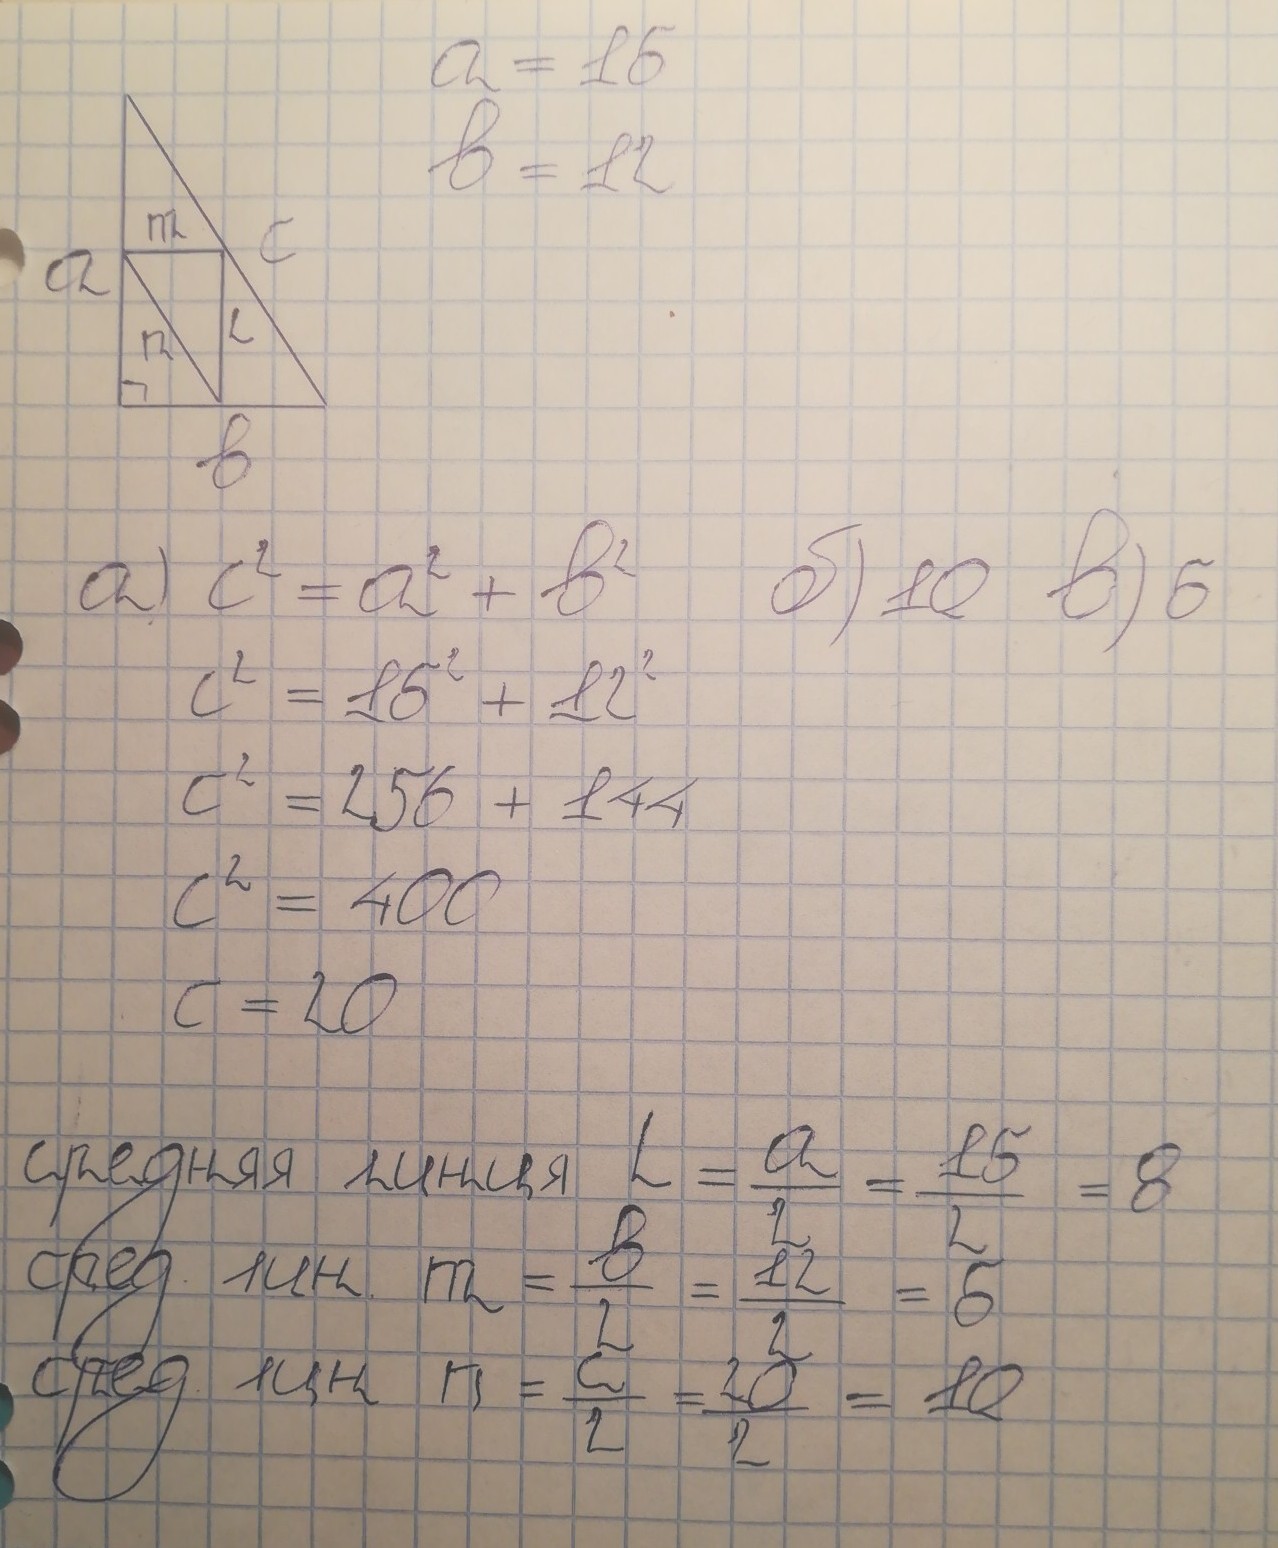 a = 16
b = 12
m
c
a
n
L
b
а) c² = a² + b² б) 10 в) 6
c² = 16² + 12²
c² = 256 + 144
c² = 400
c = 20
средняя линия L = a/2 = 16/2 = 8
сред. лин. m = b/2 = 12/2 = 6
сред. лин n = c/2 = 20/2 = 10